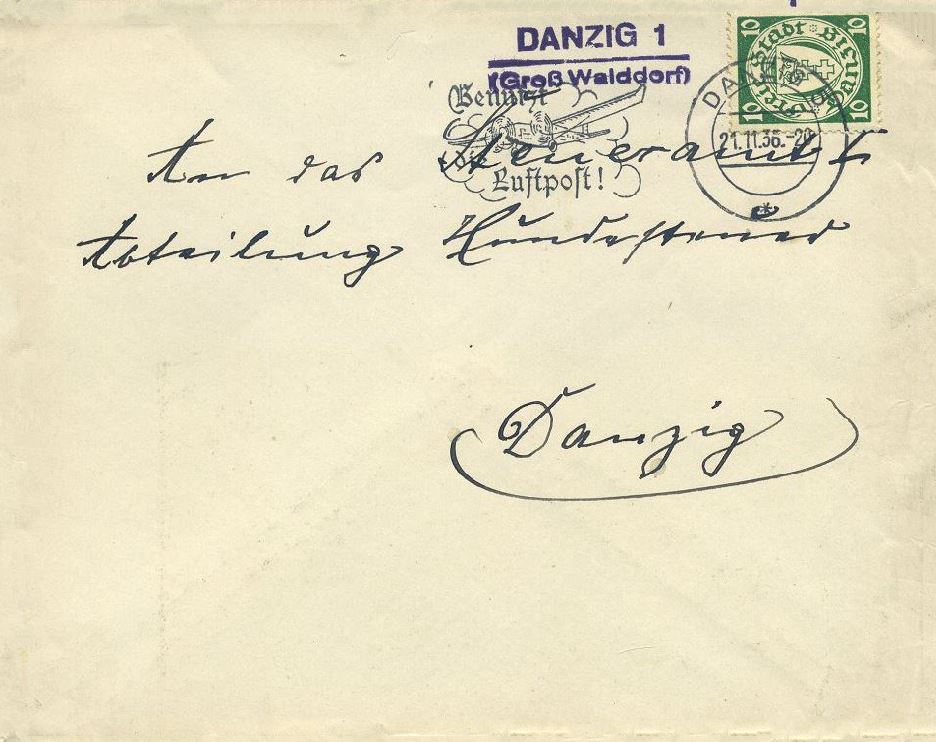 DANZIG 1
(Groß Walddorf)
Benutzt
die
Luftpost!
DANZIG
21.11.36.-20
*
10 10
Freie Stadt Danzig
10 10
An das Steueramt I
Abteilung Hundesteuer
Danzig